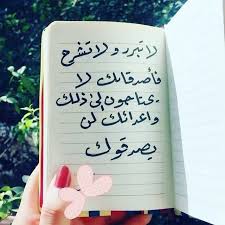 لا تبرر ولا تشرح
فأصدقائك لا
يحتاجون إلى ذلك
واعدائك لن
يصدقوك